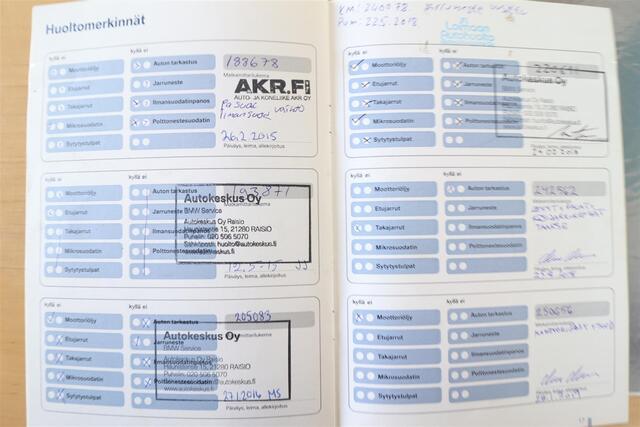 Huoltomerkinnät
kyllä ei
kyllä ei
Moottoriöljy
Auton tarkastus
188678
Etujarrut
Jarruneste
Matkamittarilukema
AKR.FI
AUTO- JA KONELIIKE AKR OY
Takajarrut
Ilmansuodatinpanos
Mikrosuodatin
Polttonestesuodatin
Sytytystulpat
26.2.2015
Päiväys, leima, allekirjoitus
kyllä ei
kyllä ei
Moottoriöljy
Auton tarkastus
193871
Matkamittarilukema
Autokeskus Oy
Etujarrut
Jarruneste
BMW Service
Autokeskus Oy Raisio
Takajarrut
Ilmansuodatinpanos
21280 RAISIO
Puhelin: 020 506 5070
Mikrosuodatin
Polttonestesuodatin
Sähköposti: huolto@autokeskus.fi
Sytytystulpat
12.5-15 JJ
Päiväys, leima, allekirjoitus
kyllä ei
kyllä ei
Moottoriöljy
Auton tarkastus
205083
Matkamittarilukema
Autokeskus Oy
Etujarrut
Jarruneste
BMW Service
Takajarrut
Autokeskus Oy Raisio
Ilmansuodatinpanos
21280 RAISIO
Puhelin: 020 506 5070
Mikrosuodatin
Polttonestesuodatin
@autokeskus.fi
www.autokeskus.fi
Sytytystulpat
27.1.2016 MS
Päiväys, leima, allekirjoitus
KM: 240078
Pvm: 22.5.2018
Loimaan
kyllä ei
kyllä ei
Moottoriöljy
Auton tarkastus
Autokeskus Oy
Etujarrut
Jarruneste
Takajarrut
Ilmansuodatinpanos
Mikrosuodatin
Polttonestesuodatin
Sytytystulpat
Päiväys, leima, allekirjoitus
kyllä ei
kyllä ei
Moottoriöljy
Auton tarkastus
Matkamittarilukema
Etujarrut
Jarruneste
Takajarrut
Ilmansuodatinpanos
Mikrosuodatin
Polttonestesuodatin
Sytytystulpat
Päiväys, leima, allekirjoitus
kyllä ei
kyllä ei
Moottoriöljy
Auton tarkastus
Matkamittarilukema
Etujarrut
Jarruneste
Takajarrut
Ilmansuodatinpanos
Mikrosuodatin
Polttonestesuodatin
Sytytystulpat
Päiväys, leima, allekirjoitus
17